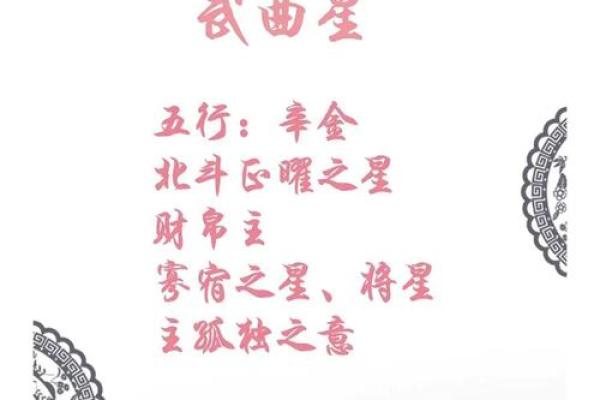 武曲星
五行：辛金
北斗正曜之星
财帛主
寡宿之星、将星
主孤独之意